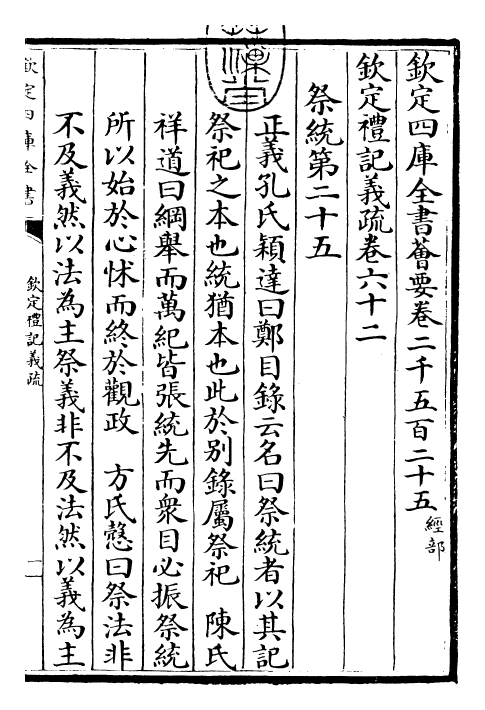 欽定四庫全書薈要卷二千五百二十五 經部
欽定禮記義疏卷六十二
祭統第二十五
正義孔氏穎達曰鄭目錄云名曰祭統者以其記
祭祀之本也統猶本也此於别錄屬祭祀 陳氏
祥道曰綱舉而萬紀皆張統先而衆目必振祭統
所以始於心怵而終於觀政 方氏慤曰祭法非
不及義然以法為主祭義非不及法然以義為主
欽定四庫全書
欽定禮記義疏
一